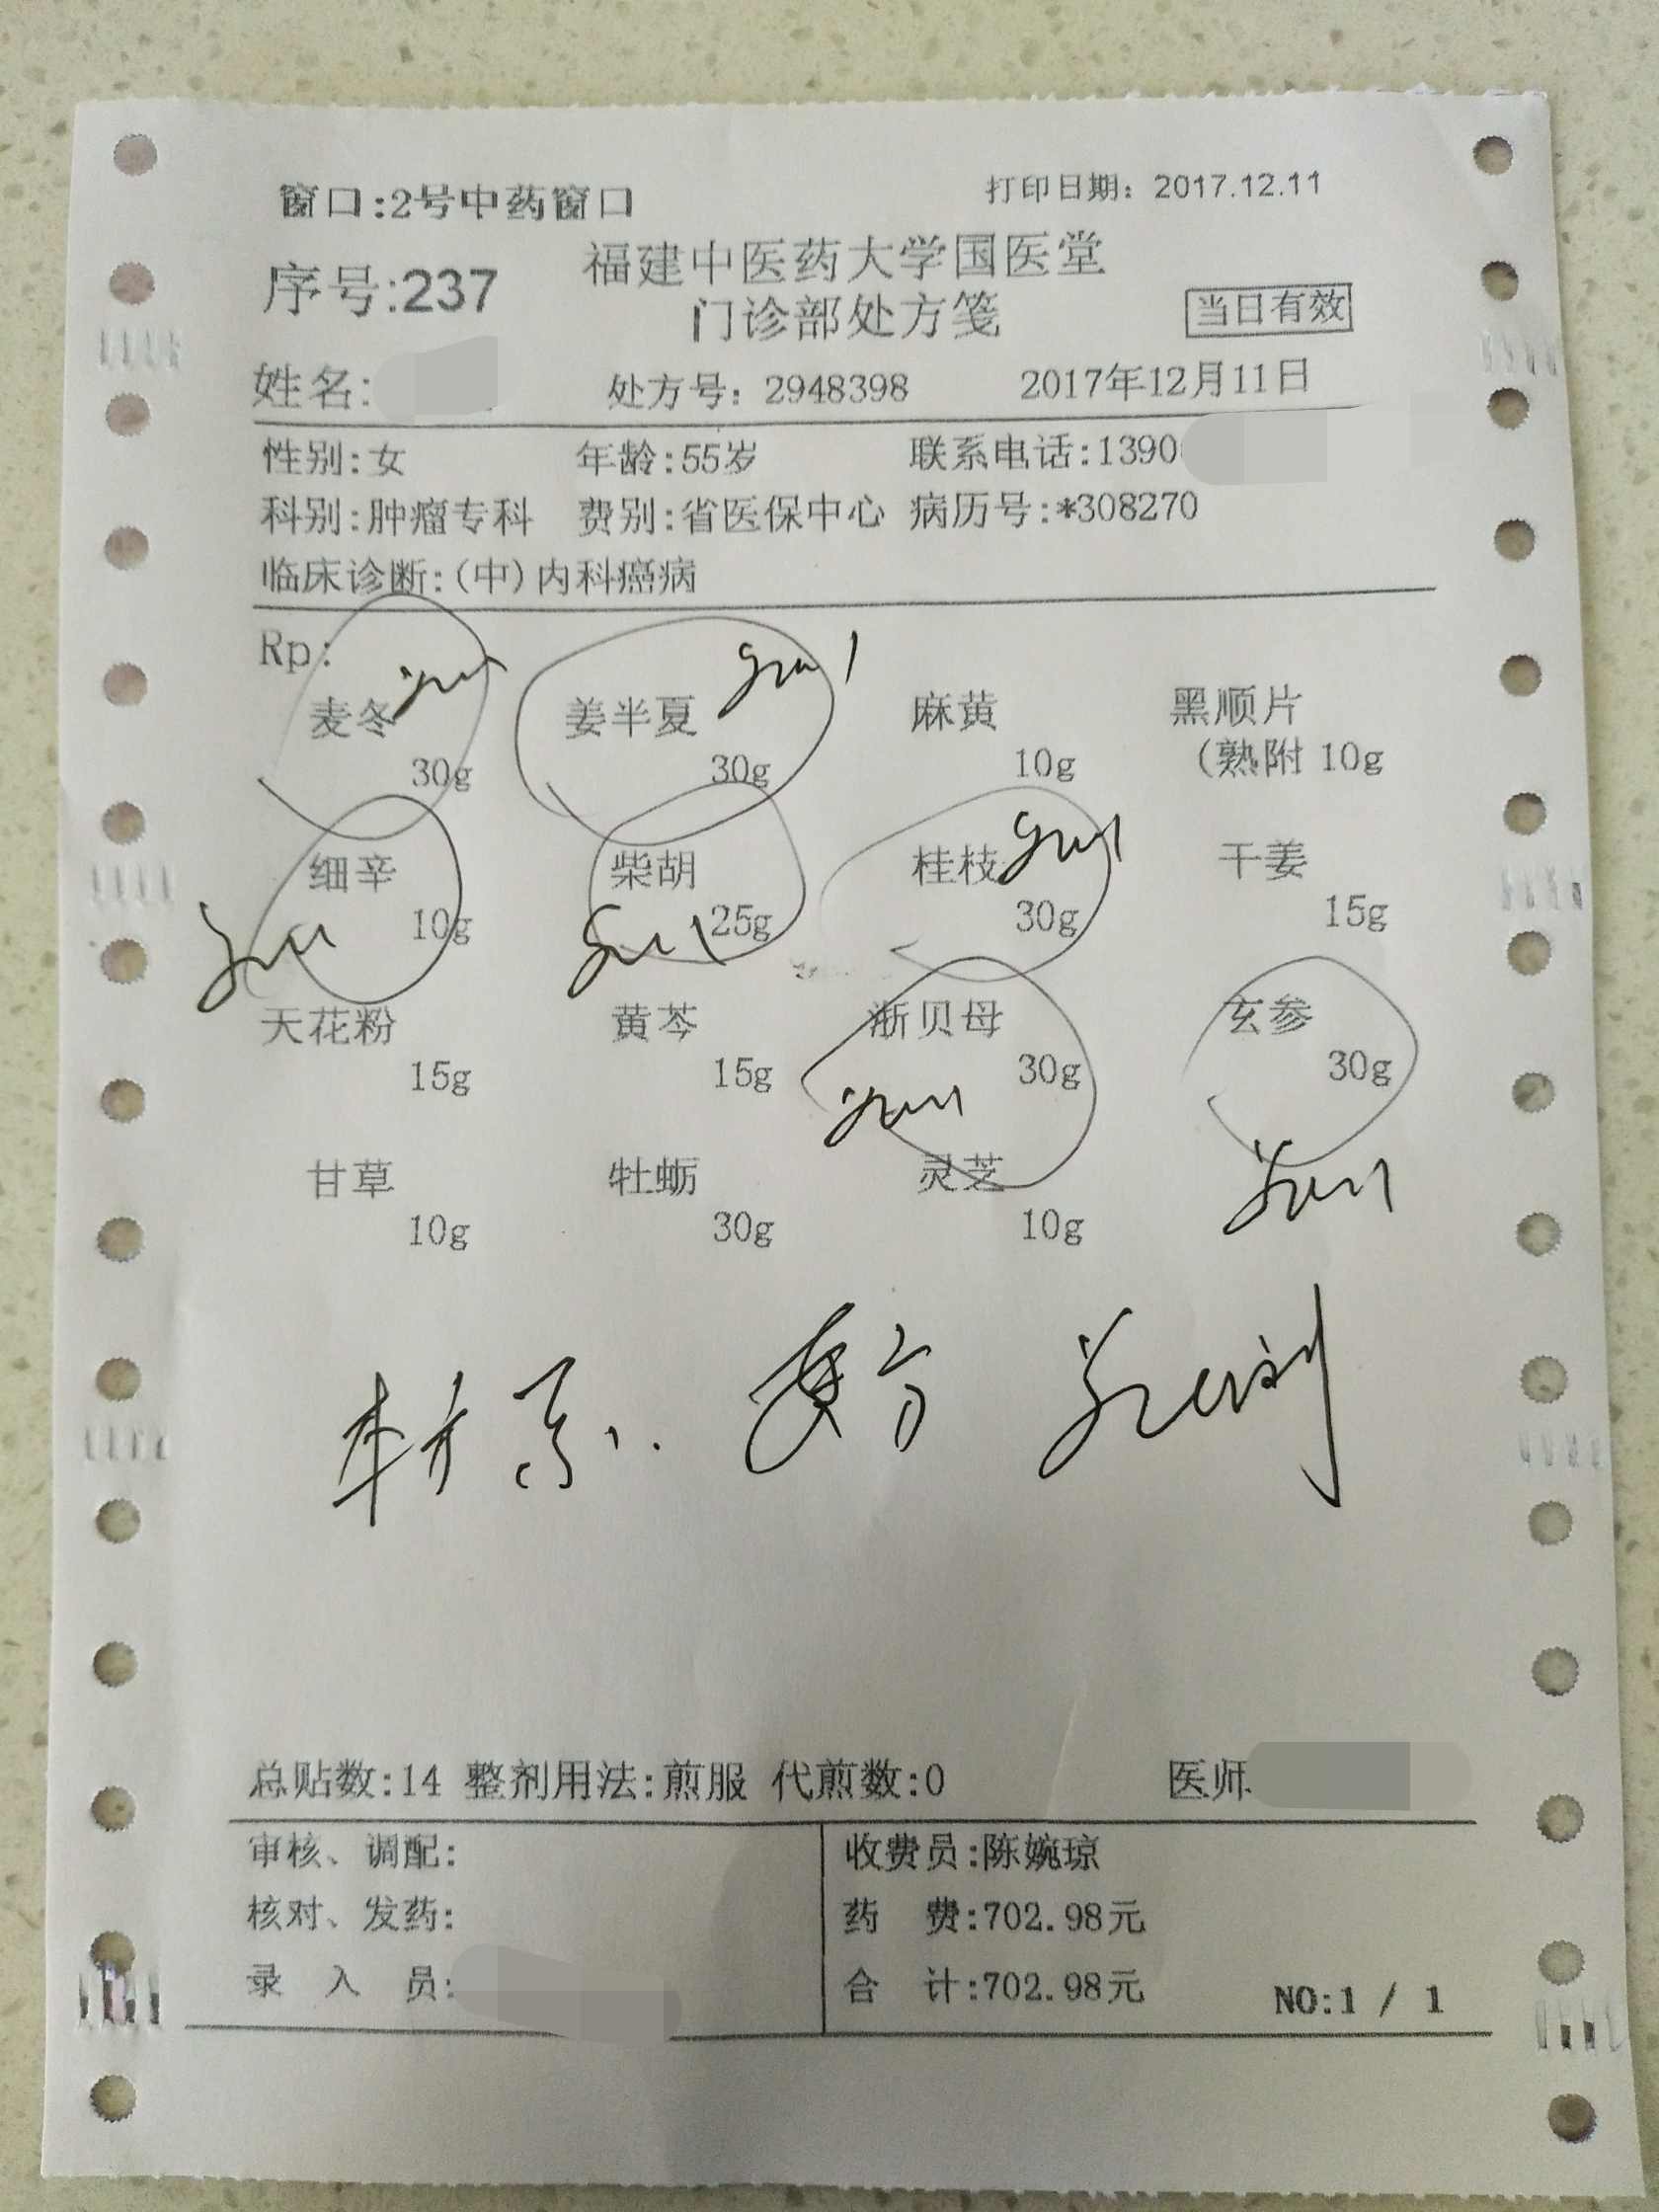 窗口:2号中药窗口
打印日期: 2017.12.11
序号:237
福建中医药大学国医堂
门诊部处方笺
当日有效
姓名: 处方号: 2948398 2017年12月11日
性别:女 年龄:55岁 联系电话:1390
科别:肿瘤专科 费别:省医保中心 病历号:*308270
临床诊断:(中)内科癌病
Rp:
麦冬 姜半夏 麻黄 黑顺片
30g 30g 10g (熟附 10g
细辛 柴胡 桂枝 干姜
10g 25g 30g 15g
天花粉 黄芩 浙贝母 玄参
15g 15g 30g 30g
甘草 牡蛎 灵芝
10g 30g 10g
总贴数:14 整剂用法:煎服 代煎数:0 医师
审核、调配: 收费员:陈婉琼
核对、发药: 药 费:702.98元
录 入 员: 合 计:702.98元 NO:1 / 1